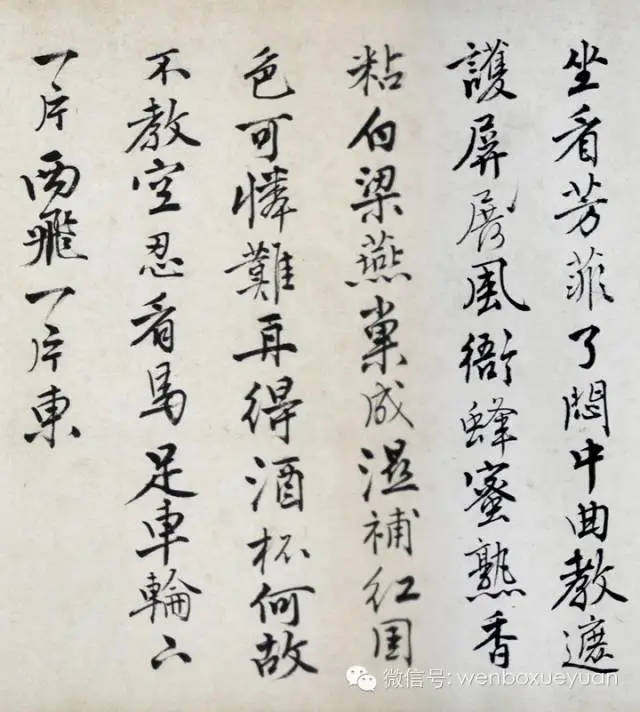 坐看芳菲了悶中曲教遮
護屏展風衙蜂蜜熟香
粘白梁燕巢成濕補紅國
色可憐難再得酒杯何故
不教空忍看馬足車輪下
一片西飛一片東
微信号: wenboxueyuan